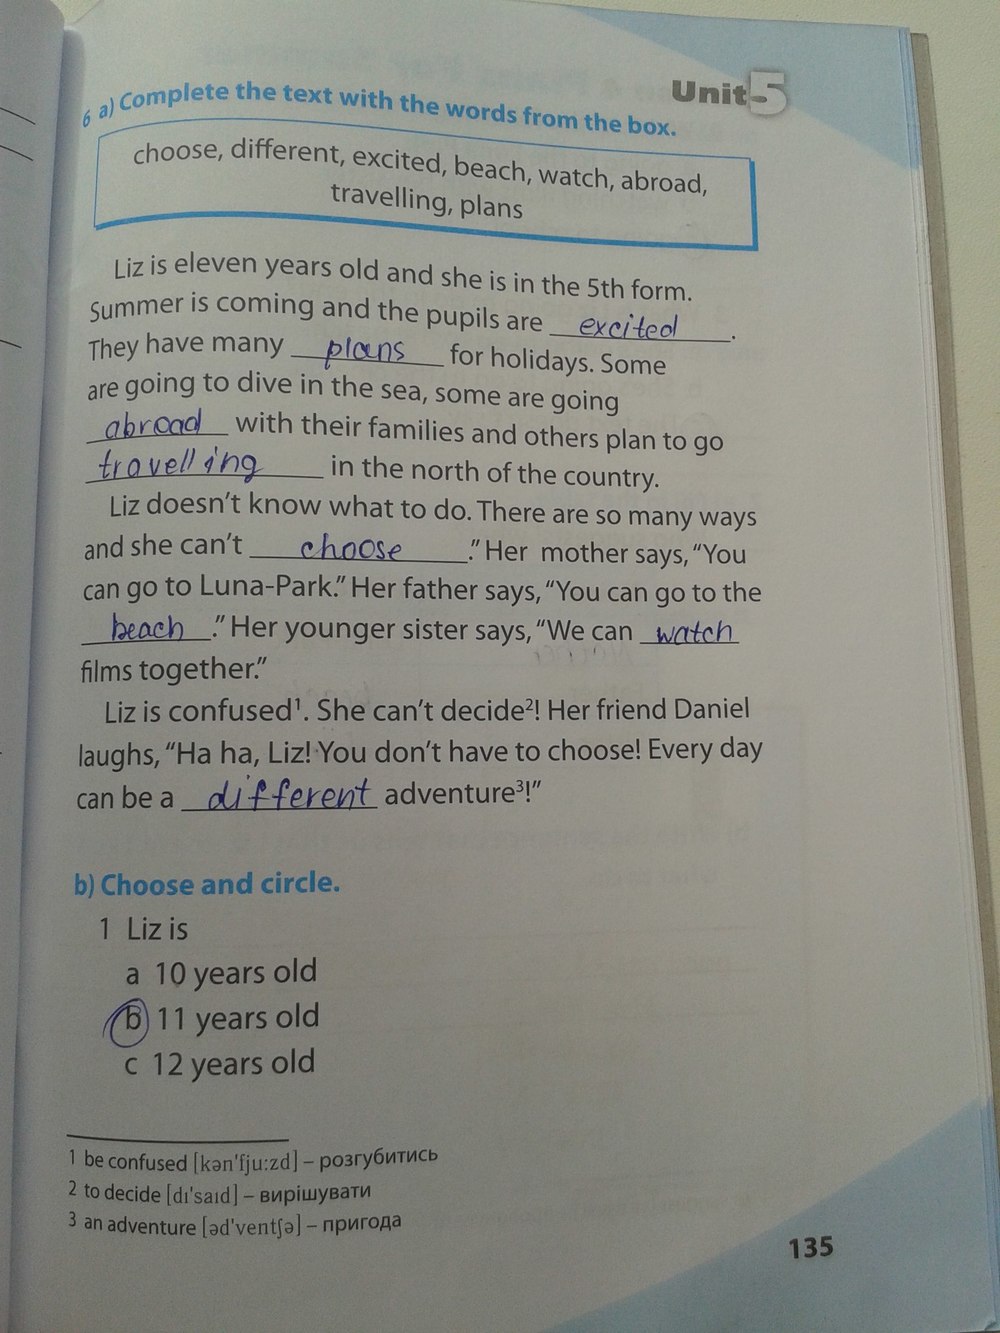 Unit 5
6 a) Complete the text with the words from the box.
choose, different, excited, beach, watch, abroad,
travelling, plans
Liz is eleven years old and she is in the 5th form.
Summer is coming and the pupils are excited.
They have many plans for holidays. Some
are going to dive in the sea, some are going
abroad with their families and others plan to go
travelling in the north of the country.
Liz doesn't know what to do. There are so many ways
and she can't choose." Her mother says, "You
can go to Luna-Park." Her father says, "You can go to the
beach." Her younger sister says, "We can watch
films together."
Liz is confused¹. She can't decide²! Her friend Daniel
laughs, "Ha ha, Liz! You don't have to choose! Every day
can be a different adventure³!"
b) Choose and circle.
1 Liz is
a 10 years old
b 11 years old
c 12 years old
1 be confused [kən'fju:zd] – розгубитись
2 to decide [dɪ'saɪd] – вирішувати
3 an adventure [əd'ventʃə] – пригода
135